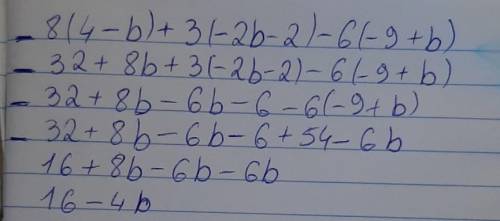 - 8(4-b)+3(-2b-2)-6(-9+b)
- 32+8b+3(-2b-2)-6(-9+b)
- 32+8b-6b-6-6(-9+b)
- 32+8b-6b-6+54-6b
16+8b-6b-6b
16-4b